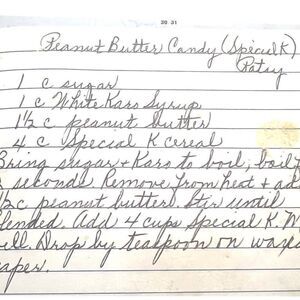 30 31
Peanut Butter Candy (Special K)
Patsy
1 c sugar
1 c White Karo Syrup
1½ c peanut butter
4 c Special K cereal
Bring sugar + Karo to boil, boil
seconds. Remove from heat + ad
½c peanut butter. Stir until
blended. Add 4 cups Special K. M
ell. Drop by teaspoon on waxed
paper.